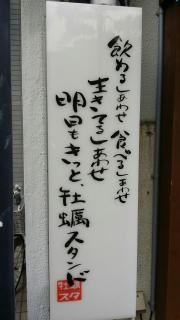 飲めるしあわせ 食べるしあわせ
生きてるしあわせ
明日もきっと、牡蠣スタンド
牡蠣
スタ